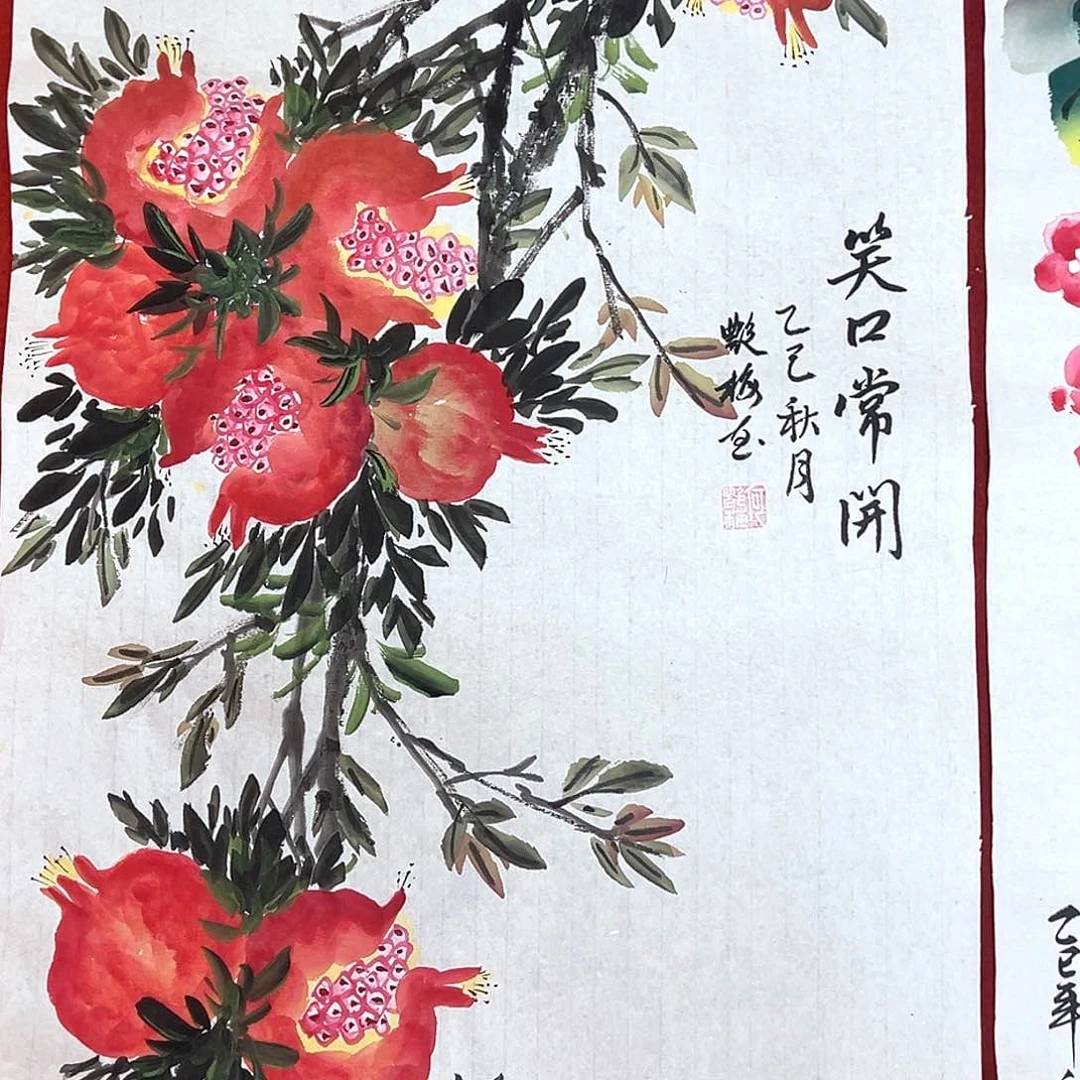 笑口常開
乙巳秋月
艷梅画
乙巳年